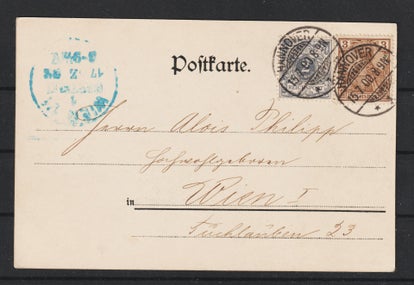 Postkarte.
HANNOVER
HANNOVER
3
3
Herrn Alois Philipp
Hochwohlgeboren
in Wien I
Tuchlauben 23